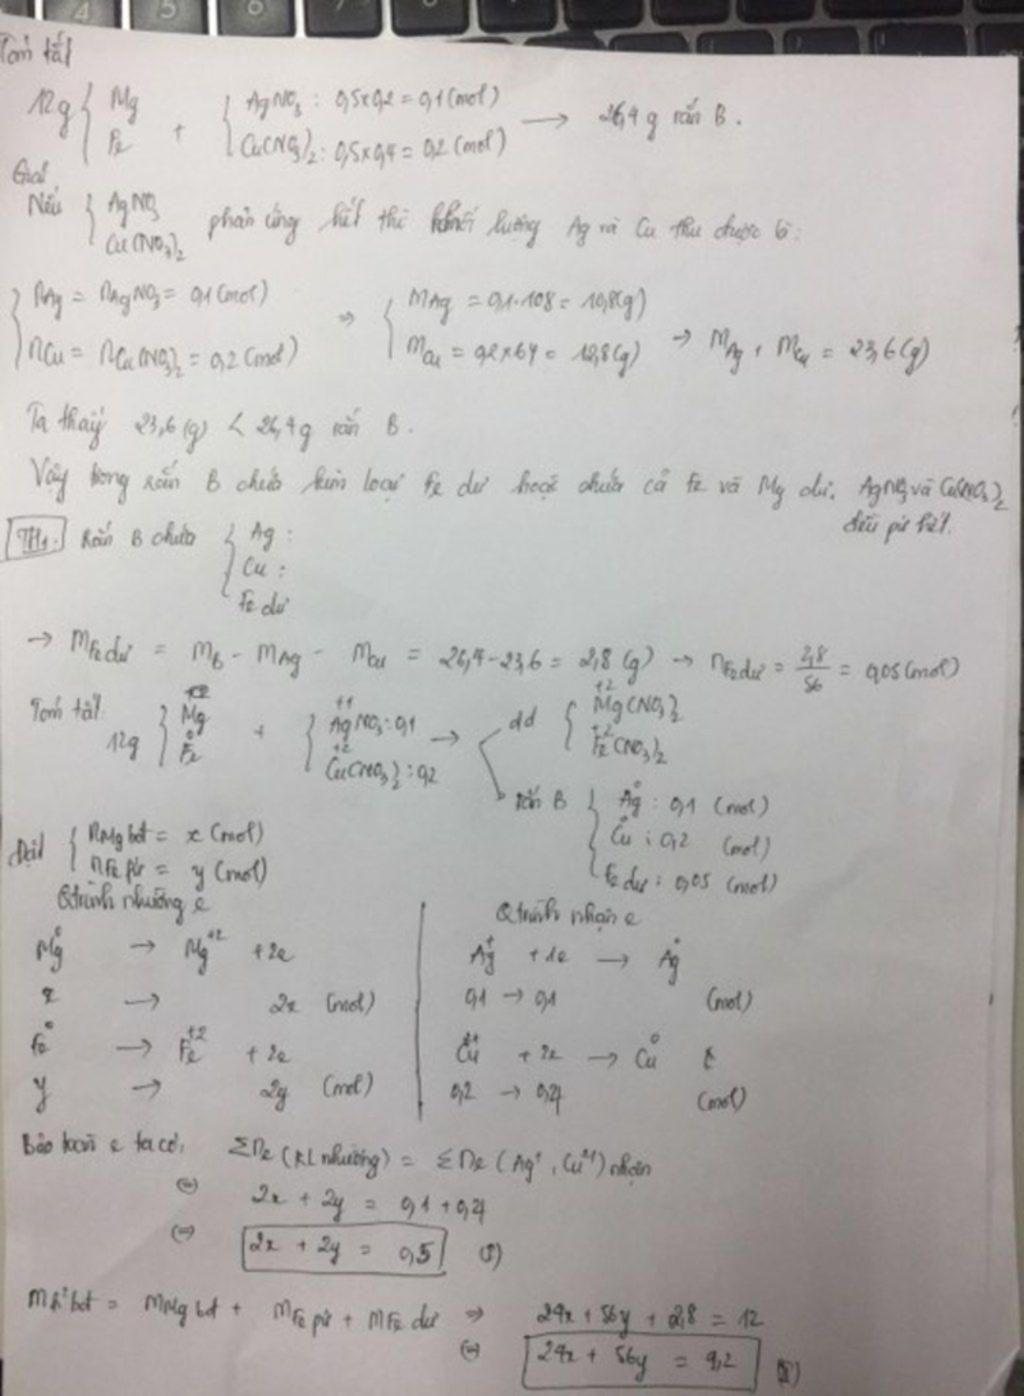 Tóm tắt
12g { Mg Fe + { AgNO3 : 0,5x0,2 = 0,1 (mol) Cu(NO3)2 : 0,5x0,4 = 0,2 (mol) → 26,4 g rắn B.
Giải
Nếu { AgNO3 Cu(NO3)2 phản ứng hết thì khối lượng Ag và Cu thu được là:
{ nAg = nAgNO3 = 0,1 (mol) ⇒ { mAg = 0,1.108 = 10,8 (g)
nCu = nCu(NO3)2 = 0,2 (mol) mCu = 0,2x64 = 12,8 (g) → mAg + mCu = 23,6 (g)
Ta thấy 23,6 (g) < 26,4 g rắn B.
Vậy trong rắn B chứa kim loại Fe dư hoặc chứa cả Fe và Mg dư. AgNO3 và Cu(NO3)2
đều pứ hết.
TH1. Rắn B chứa { Ag :
Cu :
Fe dư
→ mFe dư = mB - mAg - mCu = 26,4 - 23,6 = 2,8 (g) → nFe dư = 2,8/56 = 0,05 (mol)
Tóm tắt
12g { Mg Fe + { AgNO3 : 0,1 Cu(NO3)2 : 0,2 → dd { Mg(NO3)2 Fe(NO3)2
rắn B { Ag : 0,1 (mol)
Cu : 0,2 (mol)
Fe dư : 0,05 (mol)
Đặt { nMg bđ = x (mol)
nFe pứ = y (mol)
Qtrình nhường e Qtrình nhận e
Mg⁰ → Mg⁺² + 2e Ag⁺ + 1e → Ag⁰
x → 2x (mol) 0,1 → 0,1 (mol)
Fe⁰ → Fe⁺² + 2e Cu²⁺ + 2e → Cu⁰
y → 2y (mol) 0,2 → 0,4 (mol)
Bảo toàn e ta có: Σne (KL nhường) = Σne (Ag⁺, Cu²⁺) nhận
⇔ 2x + 2y = 0,1 + 0,4
⇔ 2x + 2y = 0,5 (1)
mh² bđ = mMg bđ + mFe pứ + mFe dư ⇒ 24x + 56y + 2,8 = 12
⇔ 24x + 56y = 9,2 (2)